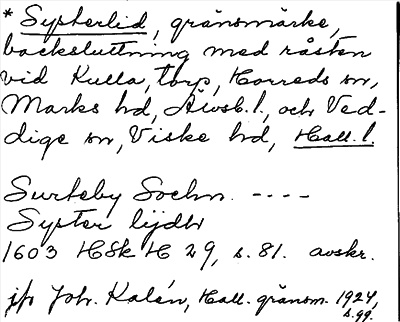 * Systerlid, gränsmärke,
backsluttning med råsten
vid Kulla, torp, Horreds sn,
Marks hd, Älvsb. l., och Ved-
dige sn, Viske hd, Hall. l.
Surteby Sochn. ----
Syster lijdh
1603 HSk H 29, s. 81. avskr.
jfr Joh. Kalén, Hall. gränsm. 1924,
s. 99.